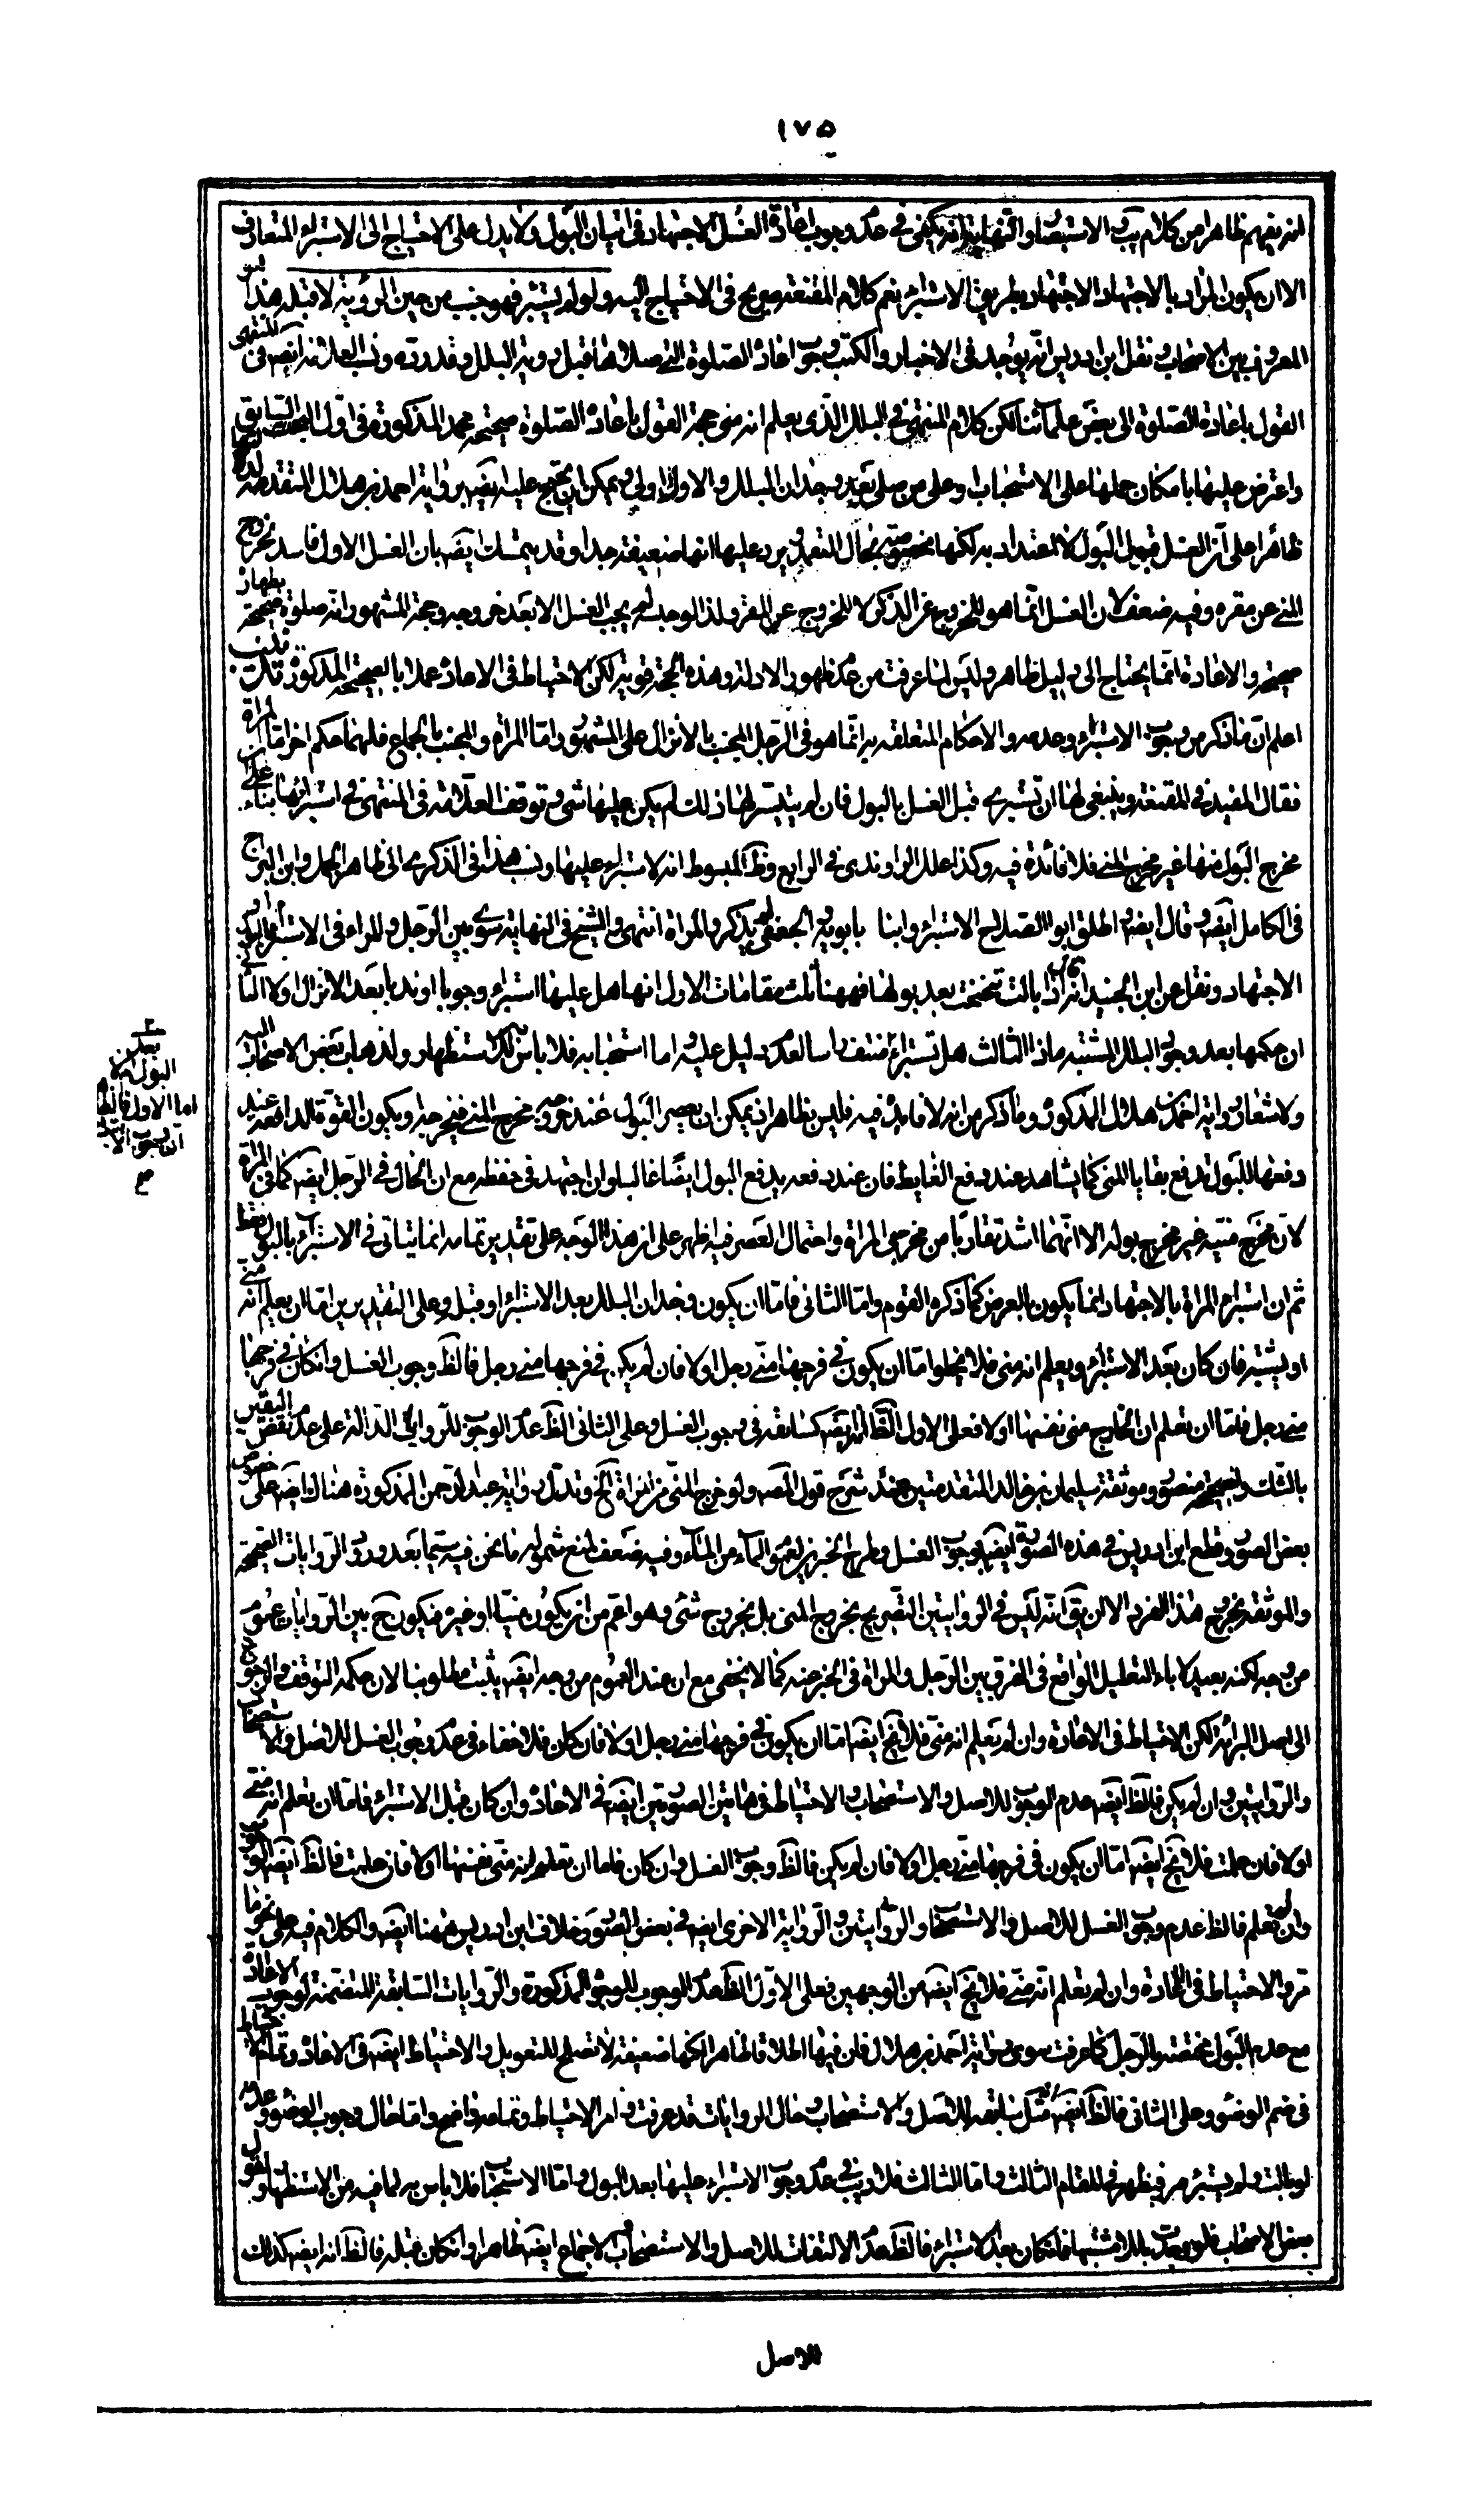 ١٧٥
انه يفهم ظاهرا من كلام الاستبصار والنهاية انه يكفى في عدم وجوب اعادة الغسل الاجتهاد في اتيان البول ولا يدل على الاحتياج الى الاستبراء المتعارف
الا ان يكون المراد بالاجتهاد الاجتهاد بطريق الاستبراء نعم كلام المقنعة صريح في الاحتياج اليه ولو لم يستبرء فهو جنب من حين الرؤية لا قبله هذا هو
المعروف بين الاصحاب ونقل ابن ادريس انه يوجد في الاخبار والكتب وجوب اعادة الصلوة التي صلاها قبل رؤية البلل وقد رده ونسب العلامة ايضه في المنتهى
القول باعادة الصلوة الى بعض علمائنا لكن كلام المنتهى في البلل الذى يعلم انه منى حجة القول باعادة الصلوة صحيحة محمد المذكورة في اول البحث السابق
واعترض عليها بامكان حملها على الاستحباب او على من صلى بعد وجدان البلل والاول اولى ويمكن ان يحتج عليه ايضه برواية احمد بن هلال المتقدمة
ظاهرا على ان الغسل قبل البول لا يعتد به لكنها مخصوصة بحال التعمد ويرد عليها انها ضعيفة جدا وقد يتمسك ايضه بان الغسل الاول فاسد لخروج
المنى عن مقره وفيه ضعف لان الغسل انما هو للخروج عن الذكر لا للخروج عن المقر ولذا لو حبسه لم يجب الغسل الا بعد خروجه وحجة المشهور انه صلوة بطهارة صحيحة
صحيحة والاعادة انما يحتاج الى دليل ظاهر وليس لما عرفت من عدم ظهور الادلة وهذه الحجة قوية لكن الاحتياط في الاعادة عملا بالصحيحة المذكورة
اعلم ان ما ذكر من وجوب الاستبراء وعدمه والاحكام المتعلقة به انما هو في الرجل المجنب بالانزال على المشهور واما المراة والمجنب بالجماع فلهما حكم اخر اما المراة
فقال المفيد في المقنعة وينبغي لها ان تستبرء قبل الغسل بالبول فان لم يتيسر لها ذلك لم يكن عليها شئ وتوقف العلامة في المنتهى في استبرائها بناء على ان
مخرج البول منها غير مخرج المنى فلا فائدة فيه وكذا علل الراوندى في الرايع وظ المبسوط انه لا استبراء عليها ونسب هذا في الذكرى الى ظاهر الجمل وابن البراج
في الكامل ايضه وقال ايضه اطلق ابو الصلاح الاستبراء وابنا بابويه والجعفى لم يذكروا المراة انتهى والشيخ في النهاية سوى بين الرجل والمراة في الاستبراء
الاجتهاد ونقل عن ابن الجنيد انه اذا بالت تنحنحت بعد بولها فههنا ثلث مقامات الاول انها هل عليها استبراء وجوبا او ندبا بعد الانزال اولا الثاني
ان حكمها بعد وجود البلل المشتبه ماذا الثالث هل تستبراء لعدم دليل عليه اما استحبابه فلا باس به للاستظهار ولذهاب بعض الاصحاب اليه
ولاشعار رواية احمد بن هلال المذكورة وما ذكر من انه لا فائدة فيه فليس بظاهر اذ يمكن ان يعصر البول عند خروجه مخرج المنى فيخرجه او يكون القوة الدافعة عند
دفعها للبول تدفع بقايا المنى كما يشاهد عند دفع الغايط فان عند دفعه يدفع البول ايضا غالبا ولو ان اجتهد في حفظه مع ان الحال في الرجل ايضه كما في المراة
لان مخرج منيه غير مخرج بوله الا انهما اشد تقاربا من مخرجى المراة واحتمال العصر فيه اظهر على ان هذا الوجه على تقدير تمامه انما يتاتى في الاستبراء بالبول فقط
ثم ان استبراء المراة بالاجتهاد انما يكون بالعرض كما ذكره القوم واما الثاني فاما ان يكون وجدان البلل بعد الاستبراء او قبل وعلى التقديرين اما ان يعلم انه منى
او يشتبه فان كان بعد الاستبراء ويعلم انه منى فلا يخلو اما ان يكون في فرجها منى رجل اولا فان لم يكن في فرجها منى رجل فالظ وجوب الغسل وان كان في فرجها
منى رجل فاما ان تعلم ان الخارج منى نفسها اولا فعلى الاول الظ انه ايضه كسابقه في وجوب الغسل وعلى الثانى الظ عدم الوجوب للروايات الدالة على عدم نقض اليقين
بالشك ولصحيحة منصور وموثقة سليمان بن خالد المتقدمتين عند شرح قول المصه ولو خرج المنى من المراة الخ وتدل رواية عبد الرحمن المذكورة هناك ايضه على خصوص
بعض الصور وقطع ابن ادريس في هذه الصورة ايضه بوجوب الغسل وطرح الخبرين لعموم الماء من الماء وفيه ضعف لمنع شموله ما نحن فيه سيما بعد ورود الروايات الصحيحة
والموثقة بخروج هذا الفرد الا ان يق انه ليس في الروايتين التصريح بخروج المنى بل بخروج شئ وهو اعم من ان يكون منيا او غيره فيكون ح بين الروايات عموم
من وجه لكنه بعيد لاباء التعليل الواقع في الفرق بين الرجل والمراة في الخبر عنه كما لا يخفى مع ان عند العموم من وجه ايضه يثبت مطلوبنا لان حكمه التوقف والرجوع
الى اصل البرائة لكن الاحتياط في الاعادة وان لم تعلم انه منى فلا يخ ايضه اما ان يكون في فرجها منى رجل اولا فان كان فلا خفاء في عدم وجوب الغسل للاصل والاستصحاب
والروايتين وان لم يكن فالظ ايضه عدم الوجوب للاصل والاستصحاب والاحتياط في هاتين الصورتين ايضه في الاعادة وان كان قبل الاستبراء فاما ان تعلم انه منى
اولا فان علمت فلا يخ ايضه اما ان يكون في فرجها منى رجل اولا فان لم يكن فالظ وجوب الغسل وان كان فاما ان تعلم انه منى نفسها اولا فان علمت فالظ ايضه الوجوب
وان لم تعلم فالظ عدم وجوب الغسل للاصل والاستصحاب والروايتين والرواية الاخرى ايضه في بعض الصور وخلاف ابن ادريس ههنا ايضه والكلام فيه على نحو ما
مر والاحتياط في الاعادة وان لم تعلم انه منى فلا يخ ايضه من الوجهين فعلى الاول الظ عدم الوجوب للوجوه المذكورة والروايات السابقة المتضمنة لوجوب الاعادة
مع عدم البول مختصة بالرجل كما عرفت سوى رواية احمد بن هلال فان فيها اطلاقا ظاهرا لكنها ضعيفة لا تصلح للتعويل والاحتياط ايضه في الاعادة وتمام الاحتياط
في ضم الوضوء وعلى الثانى فالظ ايضه مثل سابقه للاصل والاستصحاب وحال الروايات قد عرفت وامر الاحتياط وتمامه واضح واما حال وجوب الوضوء وعدمه
لو بالت ولم يستبرء فيظهر في المقام الثالث واما الثالث فلا ريب في عدم وجوب الاستبراء عليها بعد البول واما الاستحباب فلا باس به لما فيه من الاستظهار ولقول
بعض الاصحاب فلو وجدت بللا مشتبها فان كان بعد الاستبراء فالظ عدم الالتفات للاصل والاستصحاب والاجماع ايضه ظاهرا وان كان قبله فالظ انه ايضه كذلك
بعد
البول ام لا
اما الاول فالظ
ان وجوب الاستبراء
الاصل